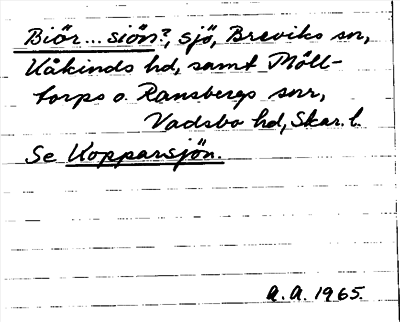 Biör... siön?, sjö, Breviks sn,
Kåkinds hd, samt Möll-
torps o. Ransbergs snr,
Vadsbo hd, Skar. l.
Se Kopparsjön.
A. A. 1965.